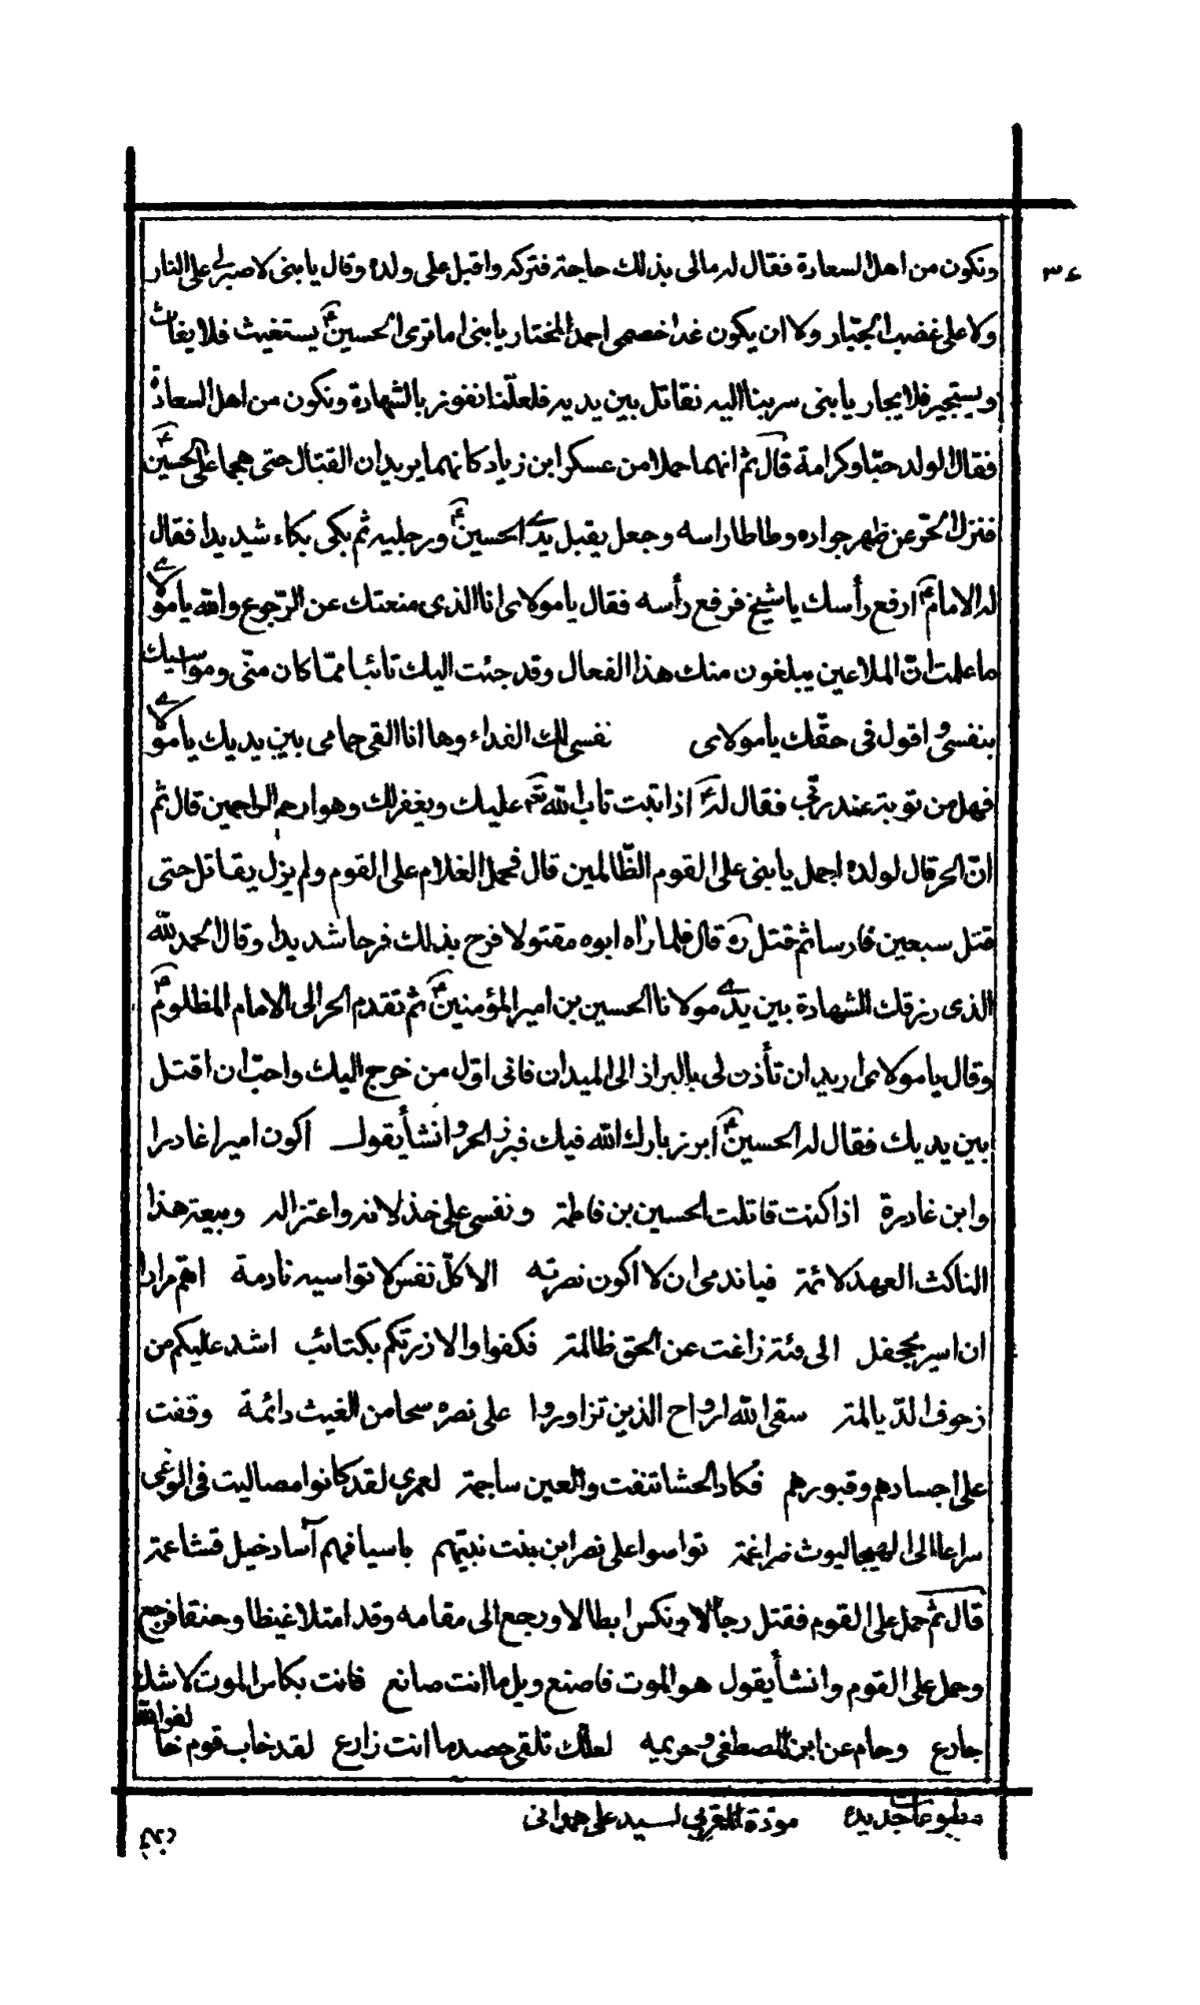 ونكون من اهل السعادة فقال له مالى بذلك حاجة فتركه واقبل على ولده وقال يا بنى لا صبر لى على النار
٣٤
ولا على غضب الجبّار ولا ان يكون غدا خصمى احمد المختار يا بنى اما ترى الحسينؑ يستغيث فلا يغاث
ويستجير فلا يجار يا بنى سر بنا اليه نقاتل بين يديه فلعلّنا نفوز بالشهادة ونكون من اهل السعادة
فقال الولد حبّا وكرامة قال ثم انهما حملا من عسكر ابن زياد كانهما يريدان القتال حتى هجما على الحسينؑ
فنزل الحرّ عن ظهر جواده وطاطا راسه وجعل يقبل يدى الحسينؑ ورجليه ثم بكى بكاء شديدا فقال
له الامامؑ ارفع رأسك يا شيخ فرفع رأسه فقال يا مولاى انا الذى منعتك عن الرّجوع والله يا مولاى
ما علمت انّ الملاعين يبلغون منك هذا الفعال وقد جئت اليك تائبا ممّا كان منّى ومواسيك
بنفسى واقول فى حقّك يا مولاى نفسى لك الفداء وها انا القى حمامى بين يديك يا مولاى
فهل من توبة عند ربّى فقال لهؑ اذا تبت تاب الله تعم عليك ويغفر لك وهو ارحم الراحمين قال ثم
انّ الحر قال لولده احمل يا بنى على القوم الظّالمين قال فحمل الغلام على القوم ولم يزل يقاتل حتى
قتل سبعين فارسا ثم قتل ره قال فلما راه ابوه مقتولا فرح بذلك فرحا شديدا وقال الحمد لله
الذى رزقك الشهادة بين يدى مولانا الحسين بن امير المؤمنينؑ ثم تقدم الحر الى الامام المظلومؑ
وقال يا مولاى اريد ان تأذن لى بالبراز الى الميدان فانى اوّل من خرج اليك واحبّ ان اقتل
بين يديك فقال له الحسينؑ ابرز بارك الله فيك فبرز الحر وانشأ يقول اكون اميرا غادرا
وابن غادرة اذا كنت قاتلت الحسين بن فاطمة ونفسى على خذلانه واعتزاله وبيعة هذا
الناكث العهد لائمة فيا ندمى ان لا اكون نصرته الا كلّ نفس لا تواسيه نادمة اهمّ مرارا
ان اسير بجحفل الى فئة زاغت عن الحق ظالمة فكفوا والا زرتكم بكتائب اشد عليكم من
زحوف الديالمة سقى الله ارواح الذين تزاوروا على نصره سحا من الغيث دائمة وقفت
على اجسادهم وقبورهم فكاد الحشا تنفت والعين ساجمة لعمرى لقد كانوا مصاليت فى الوغى
سراعا الى الهيجا ليوث ضراغمة تواسوا على نصر ابن بنت نبيّهم باسيافهم آساد خيل قشاعمة
قال ثم حمل على القوم فقتل رجالا ونكس ابطالا ورجع الى مقامه وقد امتلا غيظا وحنقا فرجع
وحمل على القوم وانشأ يقول هو الموت فاصنع ويل ما انت صانع فانت بكاس الموت لا شك
جارع وحام عن ابن المصطفى وحريمه لعلّك تلقى حصد ما انت زارع لقد خاب قوم خالفوا الله
مطبوعات جديدة مودّة القربى لسيد على همدانى
ربهم